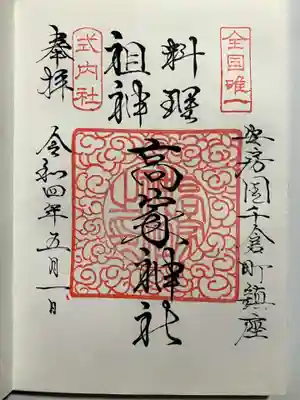 全国唯一
安房國千倉町鎮座
料理
祖神
高家神社
式内社
奉拝
令和四年五月一日